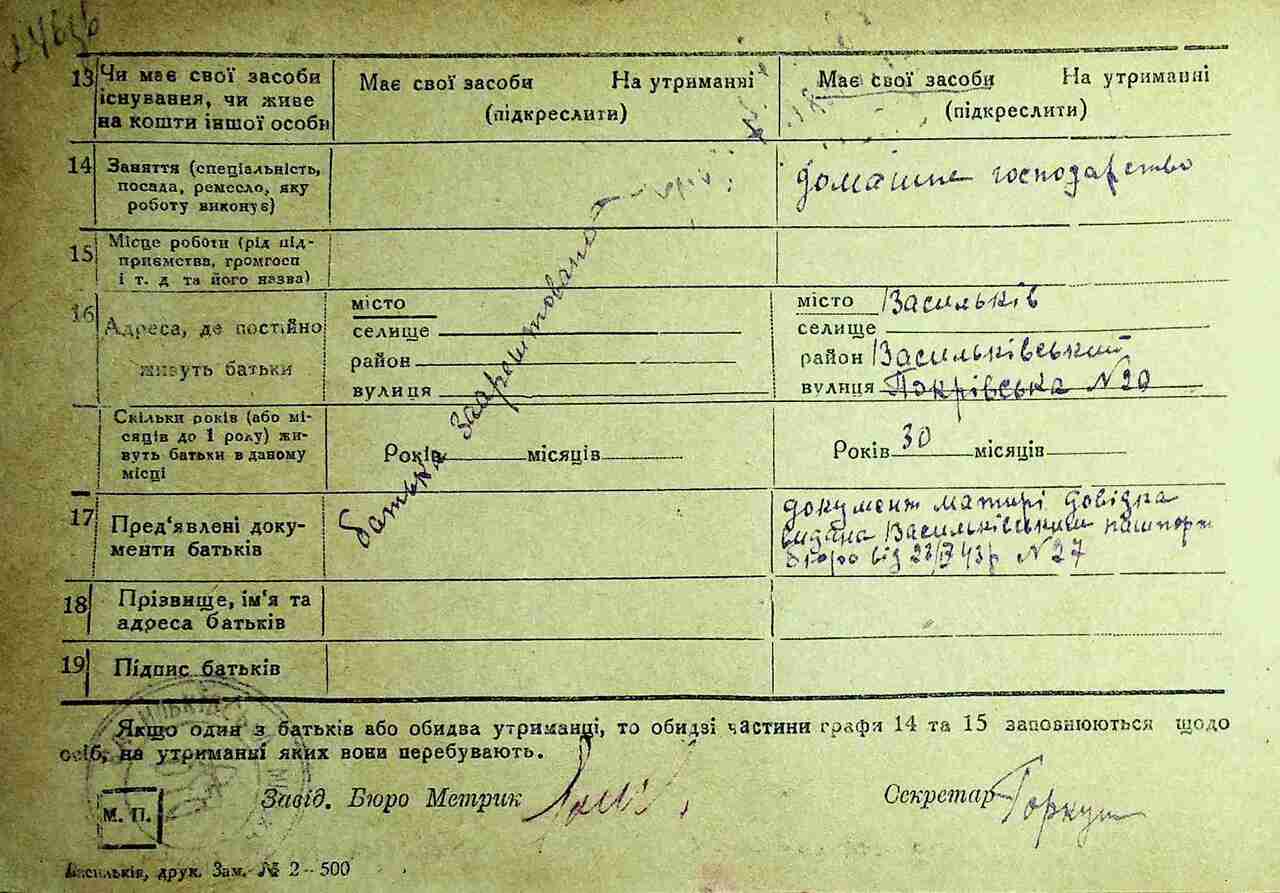 13 Чи має свої засоби Має свої засоби На утриманні Має свої засоби На утриманні
існування, чи живе (підкреслити) (підкреслити)
на кошти іншої особи
14 Заняття (спеціальність, домашнє господарство
посада, ремесло, яку
роботу виконує)
15 Місце роботи (рід під-
приємства, громгосп
і т. д та його назва)
16 Адреса, де постійно
живуть батьки
місто
селище
район
вулиця
місто Васильків
селище
район Васильківський
вулиця Покрівська №20
Скільки років (або мі-
сяців до 1 року) жи-
вуть батьки в даному
місці
Років місяців Років 30 місяців
батька заарештовано
17 Пред'явлені доку-
менти батьків
документ матирі довідка
видана Васильківським пашпорт
бюро від №27
18 Прізвище, ім'я та
адреса батьків
19 Підпис батьків
Якщо один з батьків або обидва утриманці, то обидві частини графи 14 та 15 заповнюються щодо
осіб, на утриманні яких вони перебувають.
М. П. Завід. Бюро Метрик Секретар Горкуш
Васильків, друк. Зам. № 2 - 500